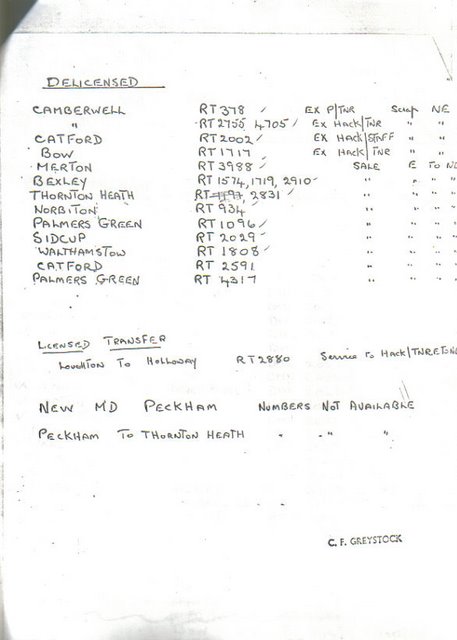 DELICENSED
CAMBERWELL RT 378 ✓ EX P/TNR Scrap NE
" RT 2755 4705 ✓ EX HACK/TNR " "
CATFORD RT 2002 ✓ EX HACK/STAFF " "
BOW RT 1717 EX HACK/TNR " "
MERTON RT 3988 ✓ SALE E TO NE
BEXLEY RT 1574, 1719, 2910 ✓ " " " "
THORNTON HEATH RT 2831 ✓ " " " "
NORBITON RT 934 ✓ " " " "
PALMERS GREEN RT 1096 ✓ " " " "
SIDCUP RT 2029 ✓ " " " "
WALTHAMSTOW RT 1808 ✓ " " " "
CATFORD RT 2591 " " " "
PALMERS GREEN RT 4317 " " " "
LICENSED TRANSFER
LOUGHTON TO HOLLOWAY RT 2880 SERVICE TO HACK/TNR E TO NE
NEW MD PECKHAM NUMBERS NOT AVAILABLE
PECKHAM TO THORNTON HEATH " " "
C. F. GREYSTOCK